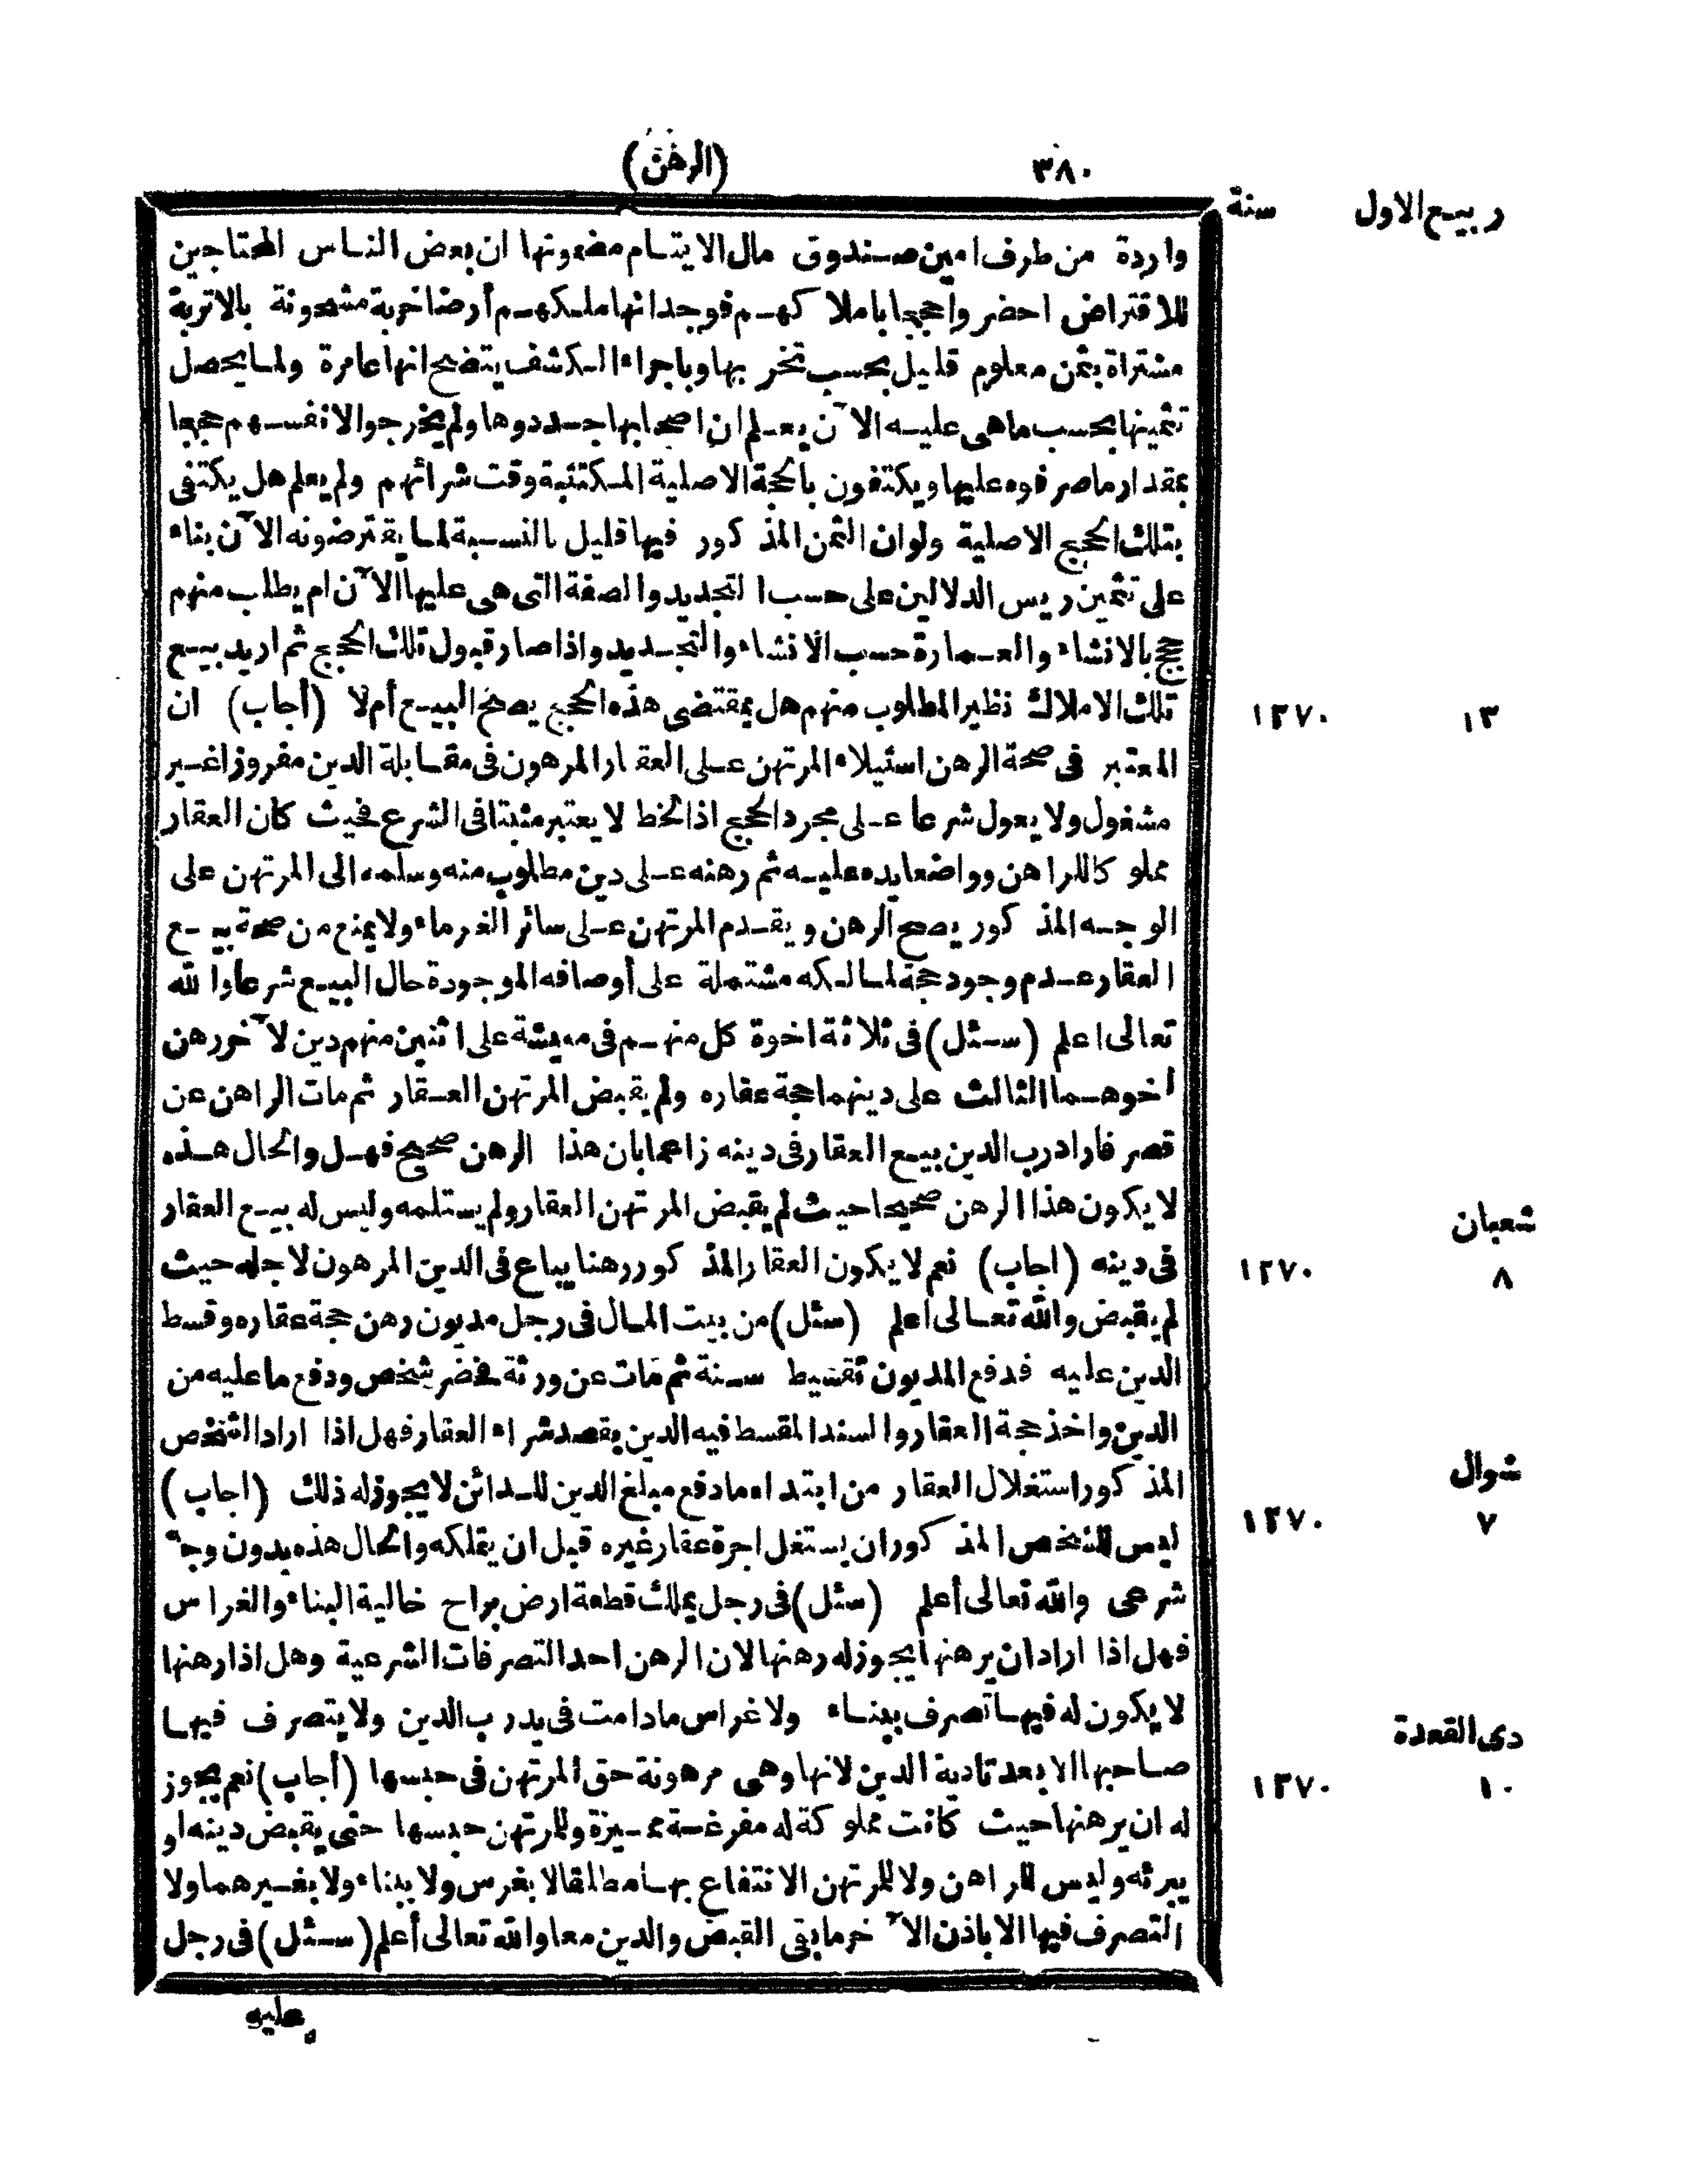 ٣٨٠ (الرهن)
ربيع الاول سنة
واردة من طرف امين صندوق مال الايتام مضمونها ان بعض الناس المحتاجين
للاقتراض احضروا حججا باملاكهم فوجد انها ملكهم أرضا خربة مشحونة بالاتربة
مشتراة بثمن معلوم قليل بحسب تخر بها وباجراء الكشف يتضح انها عامرة ولما يحصل
تثمينها بحسب ماهى عليه الآن يعلم ان اصحابها جددوها ولم يخرجوا لانفسهم حججا
بمقدار ماصرفوه عليها ويكتفون بالحجة الاصلية المكتتبة وقت شرائهم ولم يعلم هل يكتفى
بتلك الحجج الاصلية ولوان الثمن المذكور فيها قليل بالنسبة لما يقترضونه الآن بناء
على تثمين ريس الدلالين على حسب التجديد والصفة التى هى عليها الآن ام يطلب منهم
حجج بالانشاء والعمارة حسب الانشاء والتجديد واذا صار قبول تلك الحجج ثم اريد بيع
تلك الاملاك نظير المطلوب منهم هل بمقتضى هذه الحجج يصح البيع أم لا (أجاب) ان
١٣ ١٢٧٠
المعتبر فى صحة الرهن استيلاء المرتهن على العقار المرهون فى مقابلة الدين مفروزا غير
مشغول ولا يعول شرعا على مجرد الحجج اذ الخط لا يعتبر مثبتا فى الشرع فحيث كان العقار
مملوكا للراهن وواضعا يده عليه ثم رهنه على دين مطلوب منه وسلمه الى المرتهن على
الوجه المذكور يصح الرهن ويقدم المرتهن على سائر الغرماء ولا يمنع من صحة بيع
العقار عدم وجود حجة لمالكه مشتملة على أوصافه الموجودة حال البيع شرعا والله
تعالى اعلم (سئل) فى ثلاثة اخوة كل منهم فى معيشة على اثنين منهم دين لآخر رهن
اخوهما الثالث على دينهما حجة عقاره ولم يقبض المرتهن العقار ثم مات الراهن عن
قصر فاراد رب الدين بيع العقار فى دينه زاعما بان هذا الرهن صحيح فهل والحال هذه
لا يكون هذا الرهن صحيحا حيث لم يقبض المرتهن العقار ولم يستلمه وليس له بيع العقار
شعبان
فى دينه (اجاب) نعم لا يكون العقار المذكور رهنا يباع فى الدين المرهون لاجله حيث
٨ ١٢٧٠
لم يقبض والله تعالى اعلم (سئل) من بيت المال فى رجل مديون رهن حجة عقاره وقسط
الدين عليه فدفع المديون تقسيط سنة ثم مات عن ورثة فحضر شخص ودفع ما عليه من
الدين واخذ حجة العقار والسند المقسط فيه الدين بقصد شراء العقار فهل اذا اراد الشخص
شوال
المذكور استغلال العقار من ابتداء ما دفع مبلغ الدين للدائن لا يجوز له ذلك (اجاب)
٧ ١٢٧٠
ليس للشخص المذكور ان يستغل اجرة عقار غيره قبل ان يتملكه والحال هذه بدون وجه
شرعى والله تعالى أعلم (سئل) فى رجل يملك قطعة ارض براح خالية البناء والغراس
فهل اذا اراد ان يرهنها يجوز له رهنها لان الرهن احد التصرفات الشرعية وهل اذا رهنها
لا يكون له فيها تصرف ببناء ولا غراس مادامت فى يد رب الدين ولا يتصرف فيها
ذى القعدة
صاحبها الا بعد تادية الدين لانها وهى مرهونة حق المرتهن فى حبسها (أجاب) نعم يجوز
١٠ ١٢٧٠
له ان يرهنها حيث كانت مملوكة له مفرغة مميزة وللمرتهن حبسها حتى يقبض دينه او
يبرئه وليس للراهن ولا للمرتهن الانتفاع بها مطلقا لا بغرس ولا بناء ولا بغيرهما ولا
التصرف فيها الا باذن الآخر ما بقى القبض والدين معا والله تعالى أعلم (سئل) فى رجل
عليه